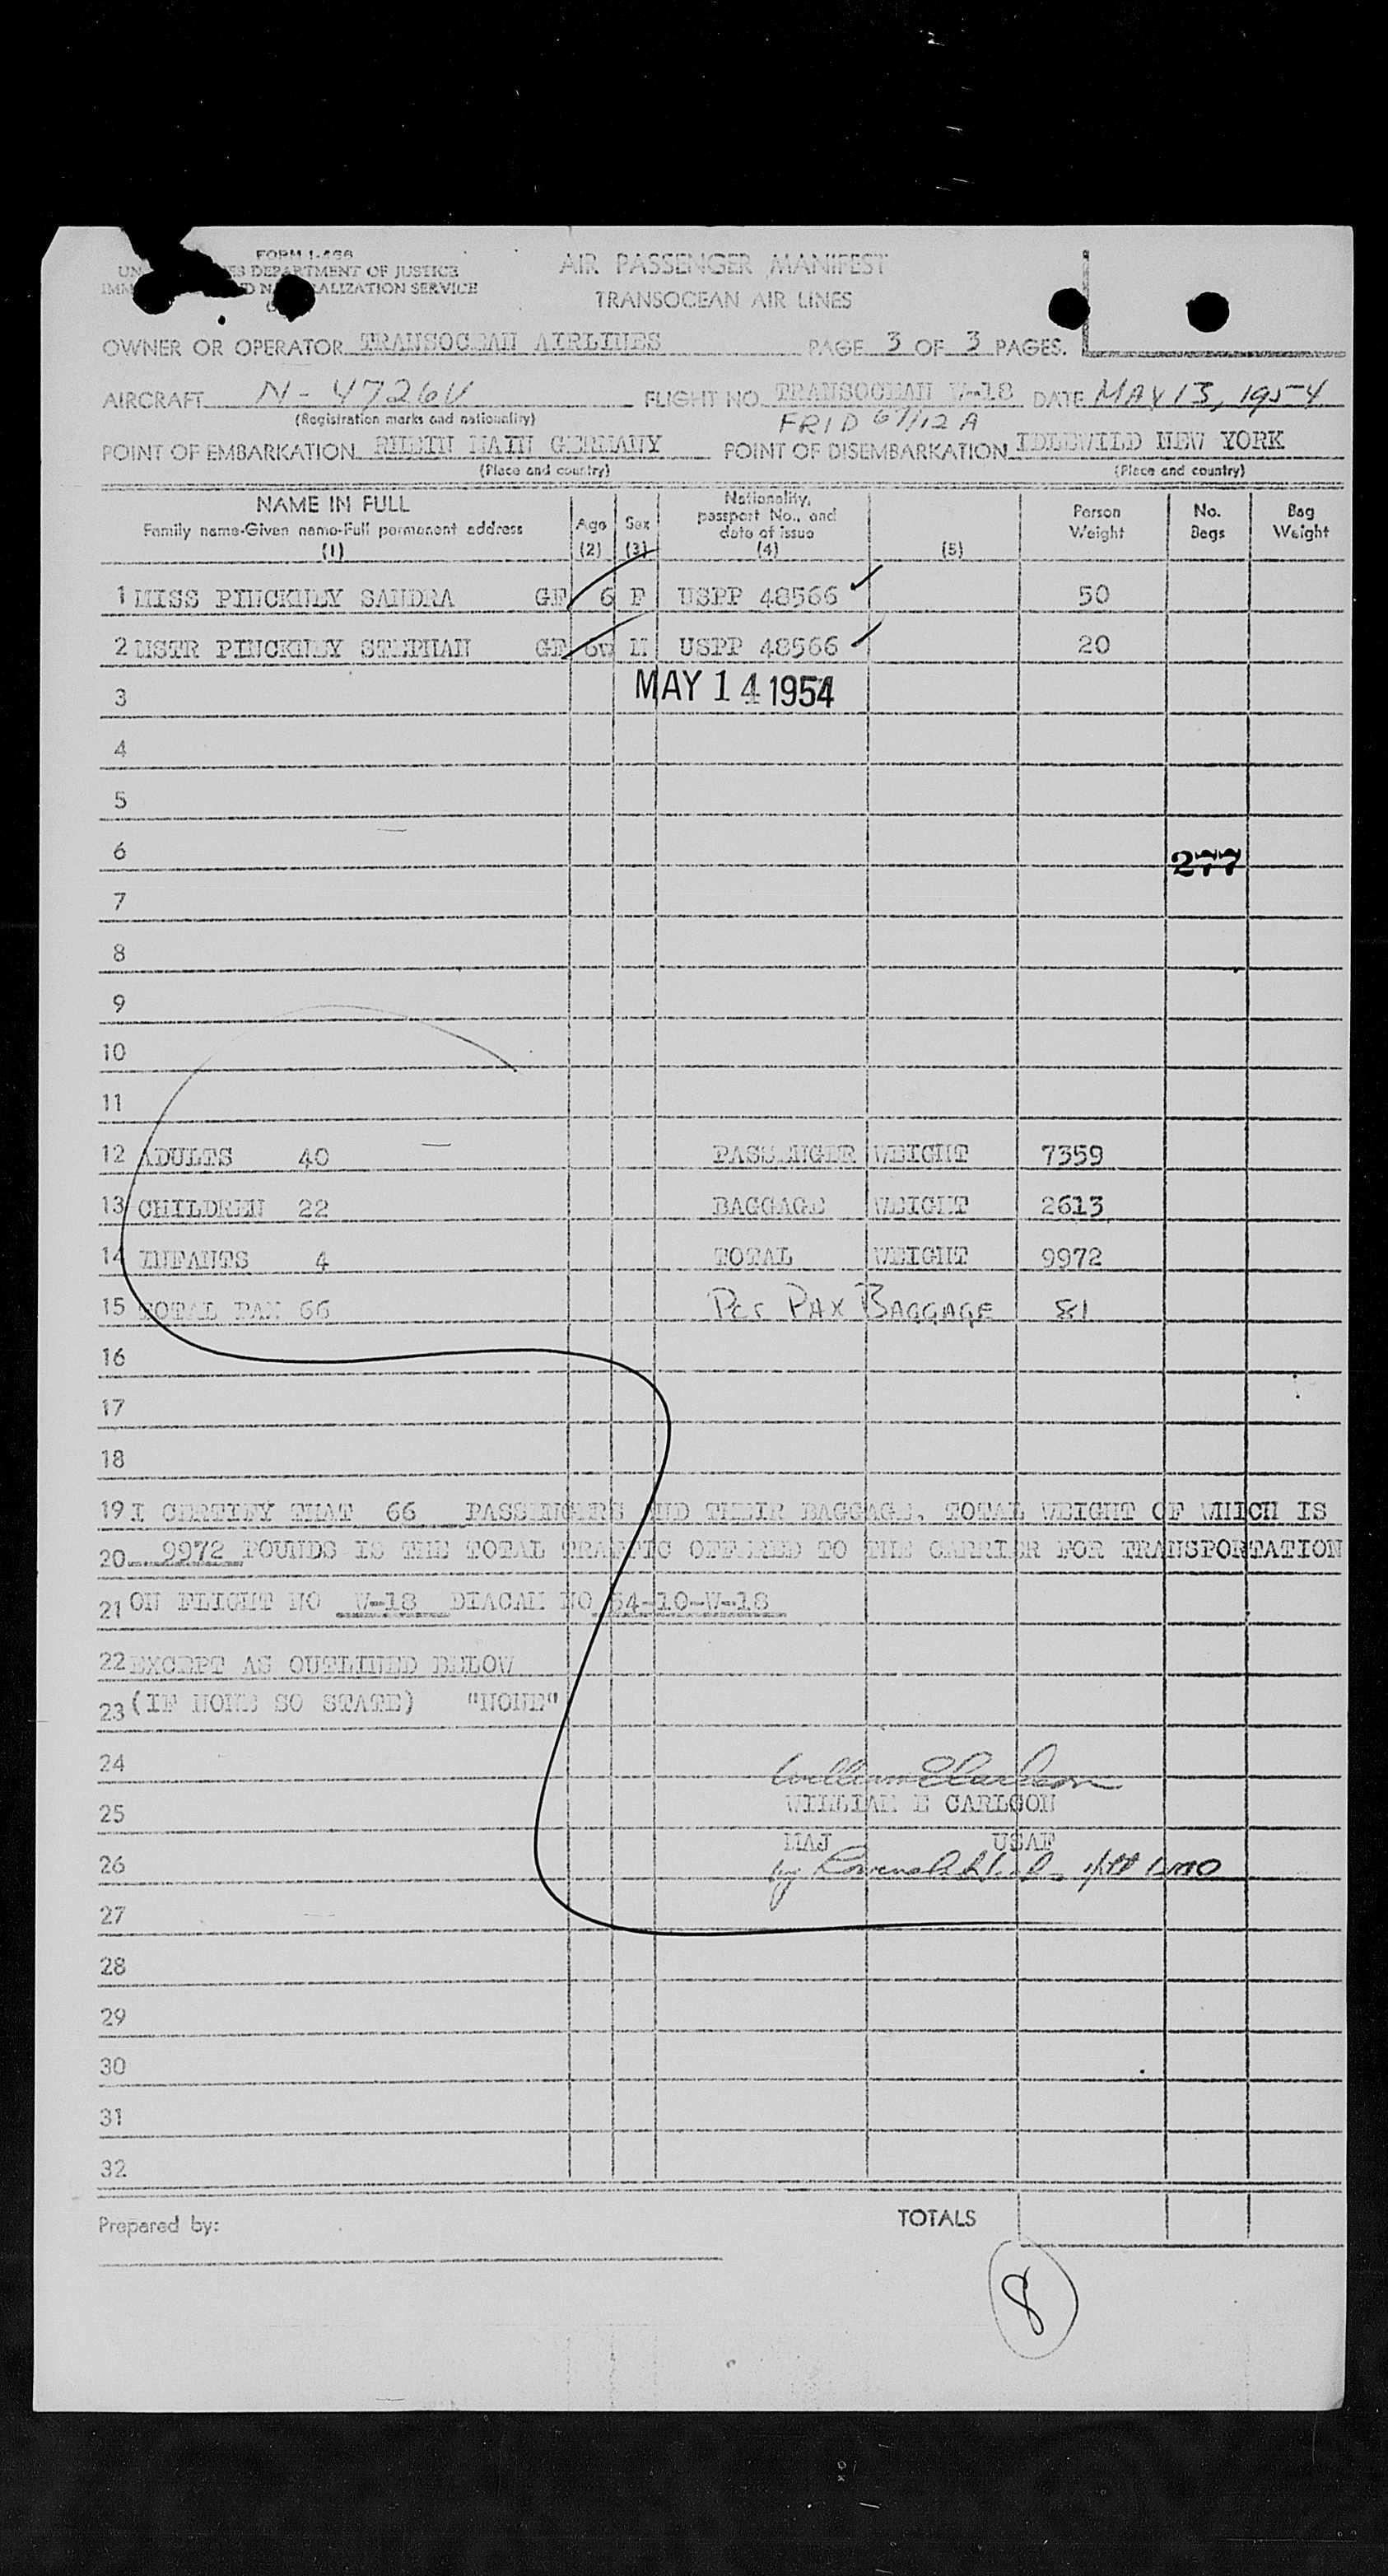 FORM I-466
AIR PASSENGER MANIFEST
DEPARTMENT OF JUSTICE
TRANSOCEAN AIR LINES
SERVICE
OWNER OR OPERATOR TRANSOCEAN AIRLINES PAGE 3 OF 3 PAGES.
AIRCRAFT N-4726V FLIGHT NO. TRANSOCEAN W-18 DATE MAY 13, 1954
(Registration marks and nationality)
FRID
POINT OF EMBARKATION RHEIN MAIN GERMANY POINT OF DISEMBARKATION IDLEWILD NEW YORK
(Place and country) (Place and country)
NAME IN FULL
Family name-Given name-Full permanent address
(1)
Age
(2)
Sex
(3)
Nationality,
passport No., and
date of issue
(4)
(5)
Person
Weight
No.
Bags
Bag
Weight
1 MISS PINCKNEY SANDRA GF 6 F USPP 48566 50
2 MSTR PINCKNEY STEPHAN GF 6W M USPP 48566 20
3 MAY 14 1954
4
5
6 277
7
8
9
10
11
12 ADULTS 40 PASSENGER WEIGHT 7359
13 CHILDREN 22 BAGGAGE WEIGHT 2613
14 INFANTS 4 TOTAL WEIGHT 9972
15 TOTAL PAX 66 Pcs PAX BAGGAGE 81
16
17
18
19 I CERTIFY THAT 66 PASSENGERS AND THEIR BAGGAGE, TOTAL WEIGHT OF WHICH IS
20 9972 POUNDS IS THE TOTAL TRAFFIC OFFERED TO THE CARRIER FOR TRANSPORTATION
21 ON FLIGHT NO W-18 DIACAM NO 54-10-W-18
22 EXCEPT AS OUTLINED BELOW
23 (IF NONE SO STATE) "NONE"
24 William E Carlson
25 WILLIAM E CARLSON
MAJ USAF
26 by
27
28
29
30
31
32
Prepared by: TOTALS
8